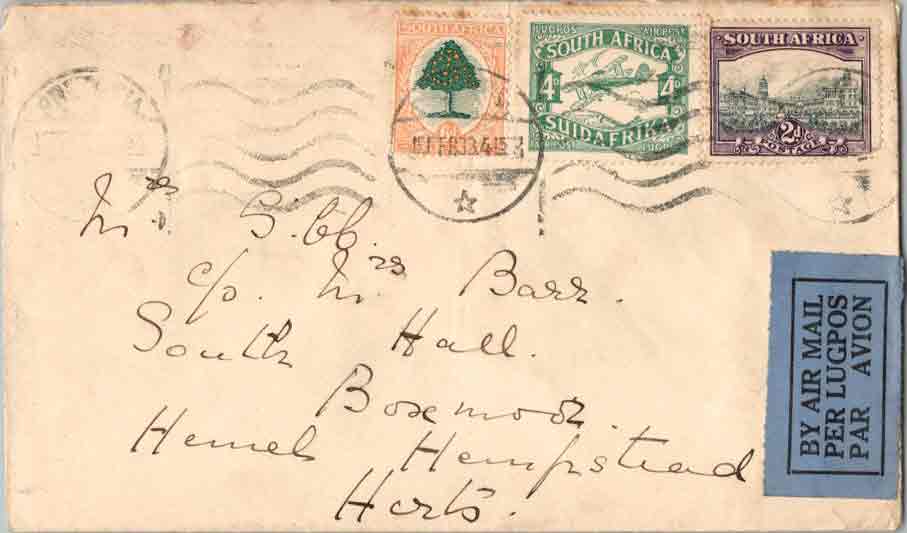 SOUTH AFRICA
6d
LUGPOS AIR POST
SOUTH AFRICA
4D 4D
SUIDAFRIKA
AIR POST LUGPOS
SOUTH AFRICA
2d
POSTAGE
FEB 33 4 15
Mrs Sibb.
c/o. Mrs Barr.
South Hall.
Boxmoor.
Hemel Hempstead
Herts.
BY AIR MAIL
PER LUGPOS
PAR AVION